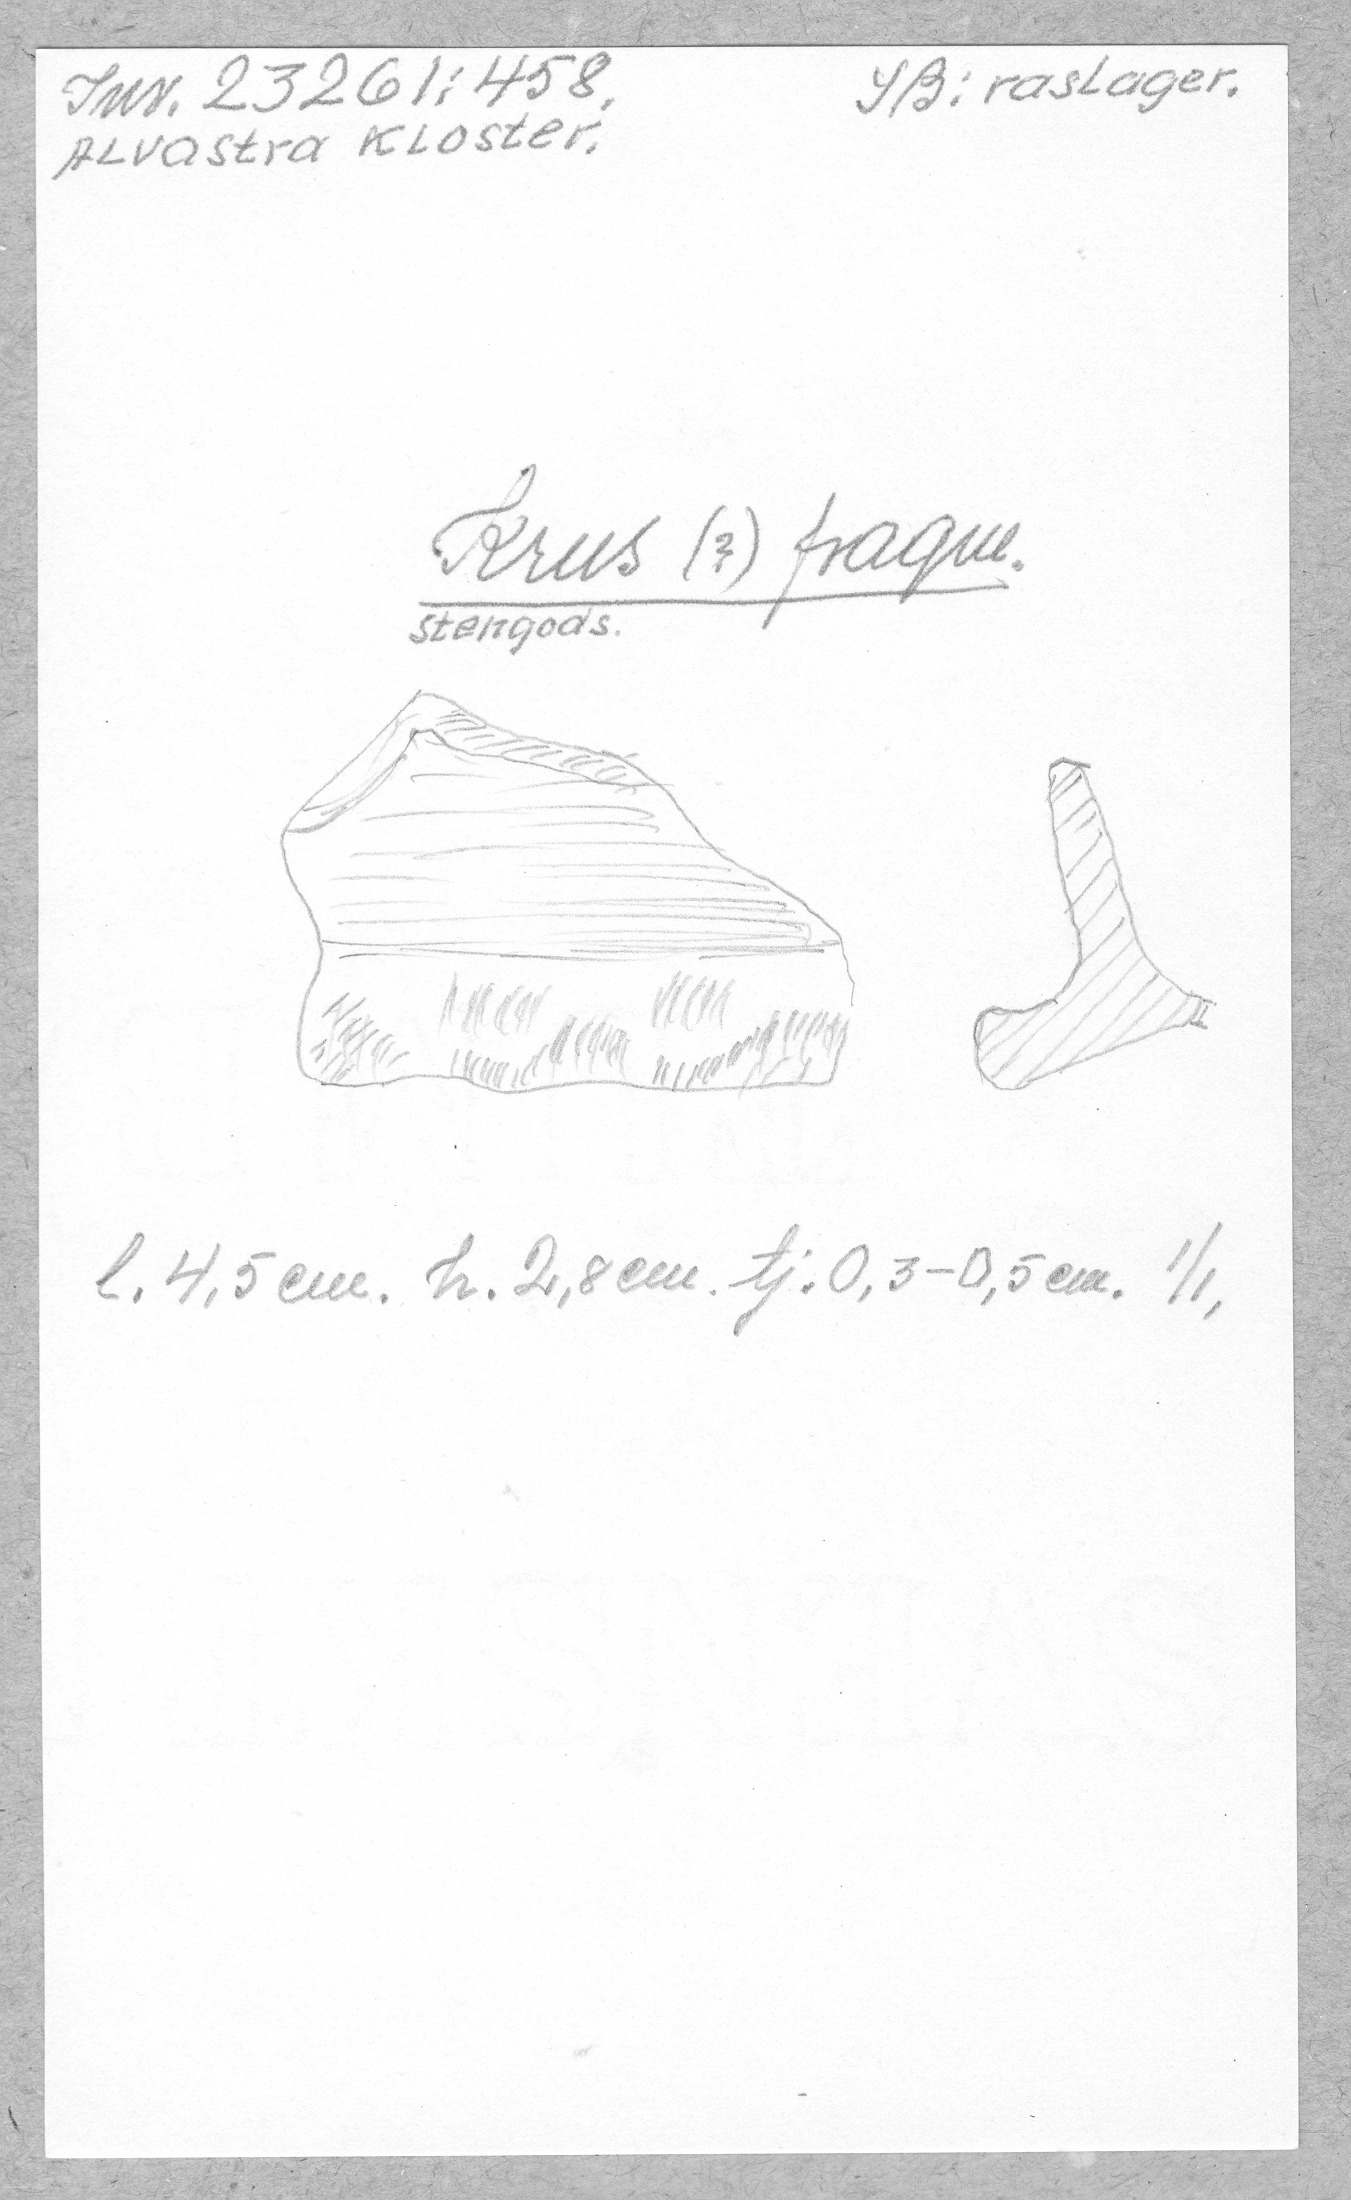 Inv. 23261:458.
Alvastra Kloster.
Yβ: raslager.
Krus (?) fragm.
stengods.
l. 4,5 cm. h. 2,8 cm. tj. 0,3-0,5 cm. 1/1.